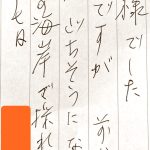 様でした
ですが
ごちそうにな
の海岸で採れ
七日